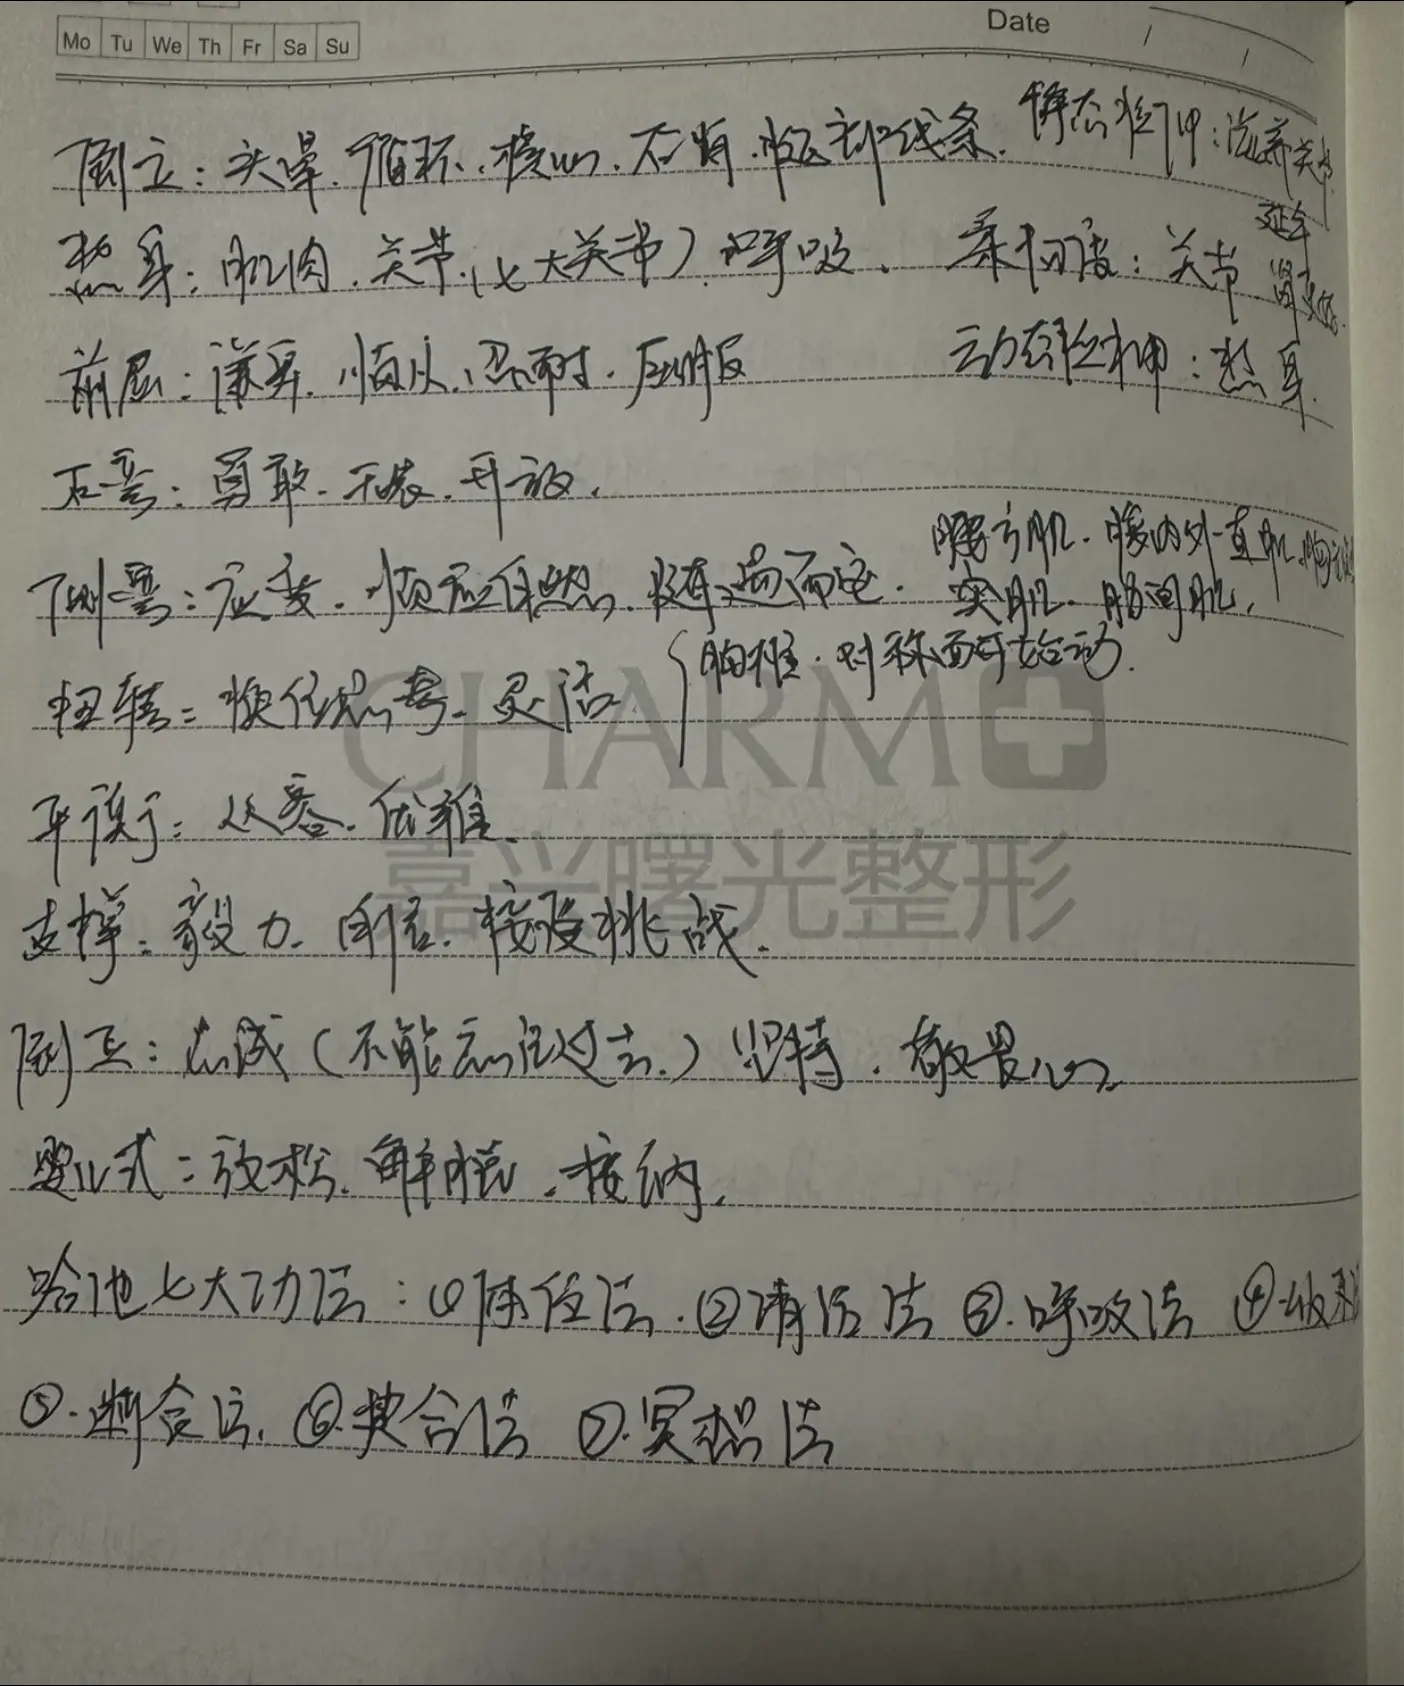 Mo Tu We Th Fr Sa Su
Date / /
倒立：头晕．循环．核心．不响．腿部线条．静态拉伸：滋养关节
热身：肌肉．关节．（七大关节）呼吸． 柔韧度：关节
延年
前屈：谦卑．顺从．忍耐． 动态拉伸：热身．
后弯：勇敢．开放．
腰方肌．腹内外 直肌．
侧弯：应变．顺应自然．随遇而安． 肋间肌．
胸椎．对称面开始动．
扭转：换位思考．灵活
平衡：从容．优雅．
支撑：毅力．自信．接受挑战．
倒立：忘我（不能忘记过去．）坚持．敬畏心
婴儿式：放松．解脱．接纳．
哈他七大功法：①体位法．②清洁法 ③．呼吸法 ④．收束
⑤．断食法．⑥．契合法 ⑦．冥想法
CHARM
嘉兴曙光整形